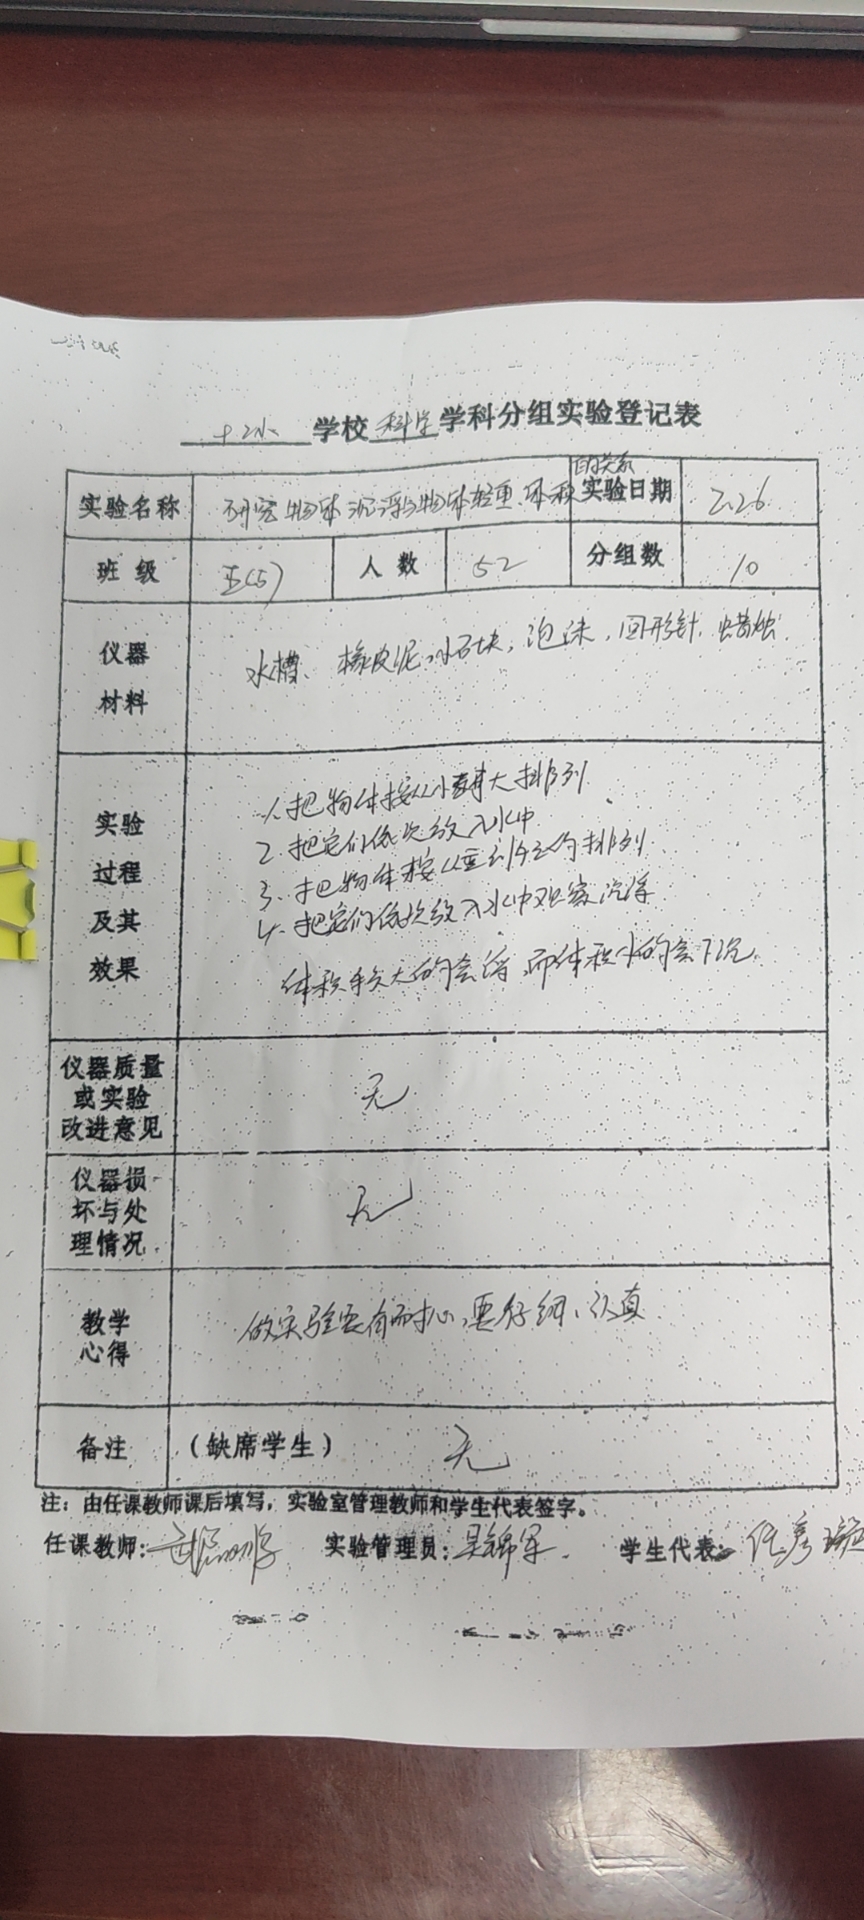 学校 科学 学科分组实验登记表
的关系
实验名称 研究物体沉浮与物体轻重、体积 实验日期 2.26
班级 五(5) 人数 52 分组数 10
仪器材料 水槽、橡皮泥、小石块、泡沫、回形针、蜡烛
实验过程及其效果
1、把物体按从小到大排列
2、把它们依次放入水中
3、把物体按从重到轻的排列
4、把它们依次放入水中观察沉浮
体积大的会浮,而体积小的会下沉。
仪器质量或实验改进意见 无
仪器损坏与处理情况 无
教学心得 做实验要有耐心,要仔细、认真
备注 (缺席学生) 无
注:由任课教师课后填写,实验室管理教师和学生代表签字。
任课教师: 实验管理员:吴锦军 学生代表:任彦